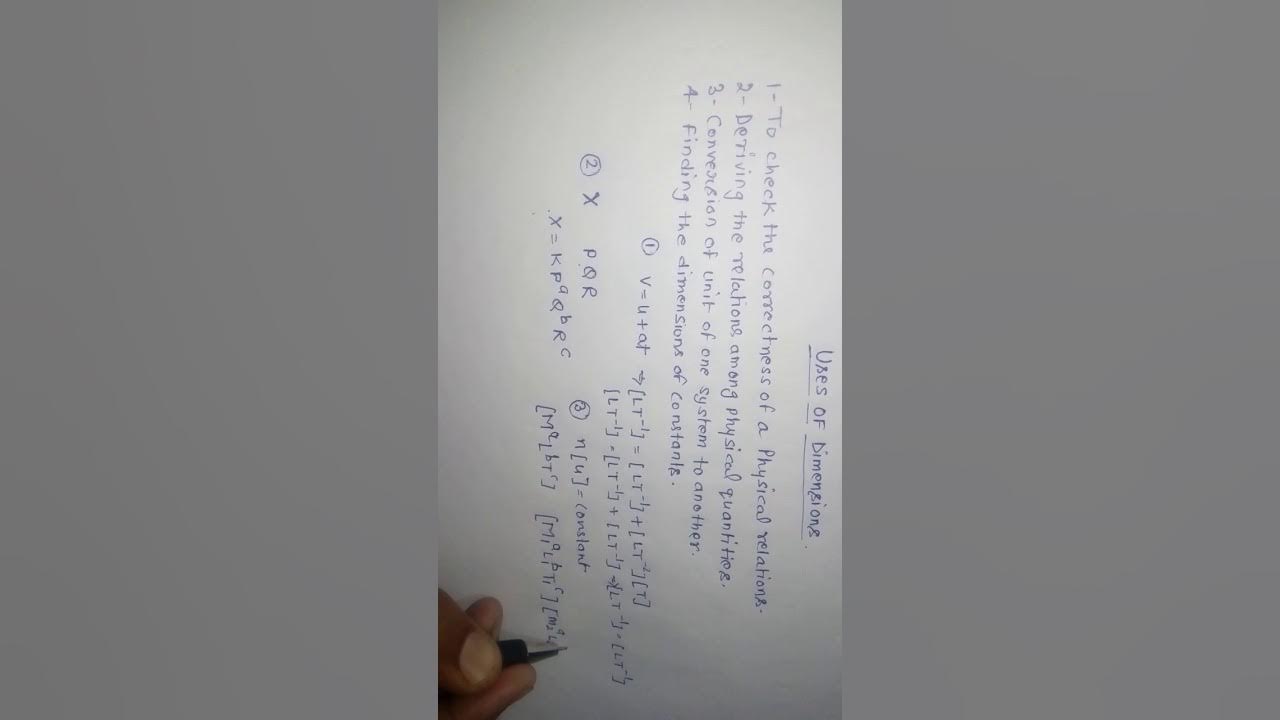 Uses OF Dimensions.
1- To check the correctness of a Physical relations.
2- Deriving the relations among physical quantities.
3- Conversion of unit of one system to another.
4- Finding the dimensions of constants.
① V=u+at ⇒ [LT⁻¹] = [LT⁻¹]+[LT⁻²][T]
[LT⁻¹] = [LT⁻¹]+[LT⁻¹] ⇒ [LT⁻¹] = [LT⁻¹]
② X P Q R
X = K Pᵃ Qᵇ Rᶜ
③ n[u] = constant
[MᵃLᵇTᶜ] [M₁ᵃL₁ᵇT₁ᶜ] [M₂ᵃL